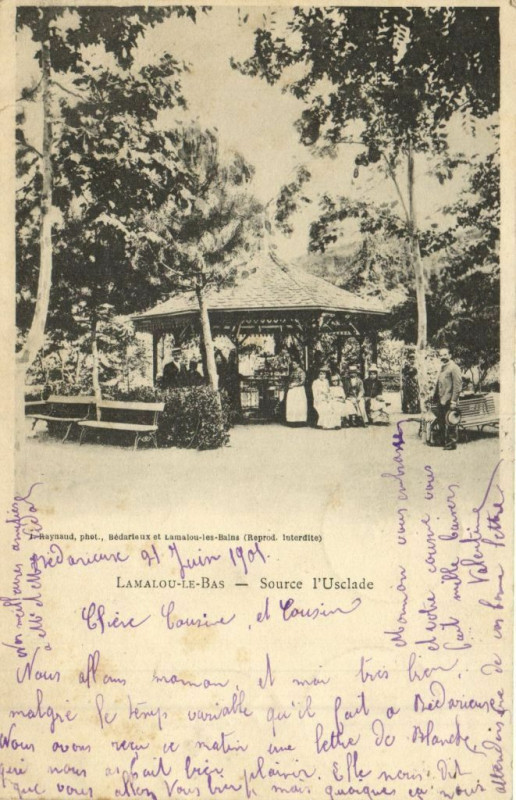 J. Raynaud, phot., Bédarieux et Lamalou-les-Bains (Reprod. Interdite)
Bédarieux 21 Juin 1901.
LAMALOU-LE-BAS — Source l'Usclade
Chère Cousine, et Cousin
Nous allons maman, et moi très bien,
malgré le temps variable qu'il fait a Bédarieux
Nous avons reçu ce matin une lettre de Blanche
qui nous a fait bien plaisir. Elle nous dit
que vous allez tous bien mais quoique ça nous
attendons de vous bonne lettre
Maman vous embrasse
et votre cousine vous
fait mille baisers
Valentine
Nos meilleures amitiés
a